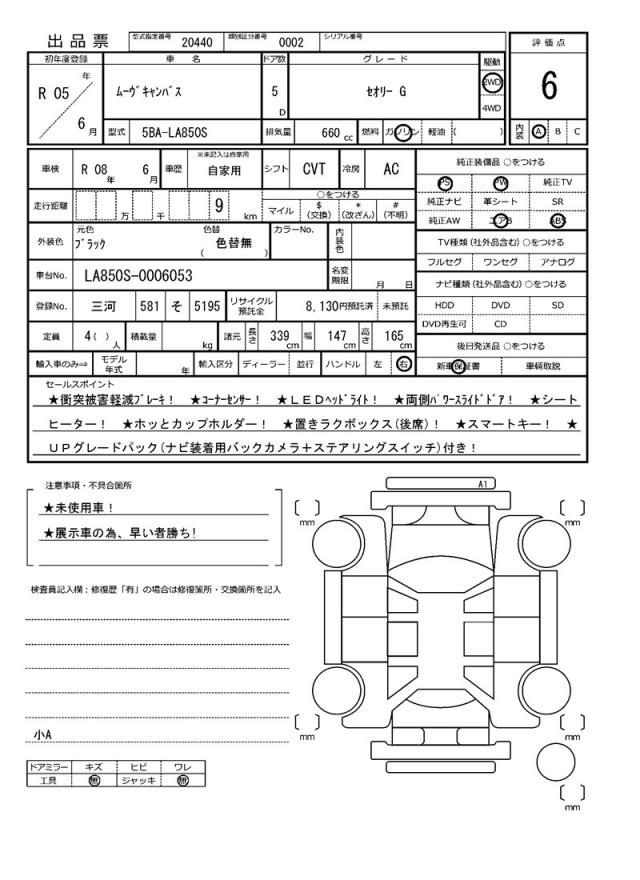 出品票 型式指定番号 20440 類別区分番号 0002 シリアル番号
評価点
初年度登録 車名 ドア数 グレード 駆動
R 05 年 ムーヴキャンバス 5 D セオリー G 2WD 6
4WD
6 月 型式 5BA-LA850S 排気量 660 cc 燃料 ガソリン 軽油 ( ) 内装 A B C
車検 R 08 年 6 月 車歴 ※未記入は自家用 自家用 シフト CVT 冷房 AC 純正装備品 ○をつける
PS PW 純正TV
走行距離 万 千 9 km ○をつける
マイル $(交換) *(改ざん) #(不明)
純正ナビ 革シート SR
純正AW エアB ABS
外装色 元色 ブラック 色替 ( 色替無 ) カラーNo. 内装色
TV種類 (社外品含む) ○をつける
フルセグ ワンセグ アナログ
車台No. LA850S-0006053 名変期限 月 日
ナビ種類 (社外品含む) ○をつける
登録No. 三河 581 そ 5195 リサイクル預託金 8,130円預託済 未預託
HDD DVD SD
DVD再生可 CD
定員 4( ) 人 積載量 kg 諸元 長さ 339 cm 幅 147 cm 高さ 165 cm
後日発送品 ○をつける
輸入車のみ⇒ モデル年式 年 輸入区分 ディーラー 並行 ハンドル 左 右 新車保証書 車輌取説
セールスポイント
★衝突被害軽減ブレーキ! ★コーナーセンサー! ★LEDヘッドライト! ★両側パワースライドドア! ★シート
ヒーター! ★ホッとカップホルダー! ★置きラクボックス(後席)! ★スマートキー! ★
UPグレードパック(ナビ装着用バックカメラ+ステアリングスイッチ)付き!
注意事項・不具合箇所
★未使用車!
★展示車の為、早い者勝ち!
A1
mm
mm
検査員記入欄:修復歴「有」の場合は修復箇所・交換箇所を記入
小A
mm
mm
ドアミラー キズ ヒビ ワレ
工具 無 ジャッキ 無
mm